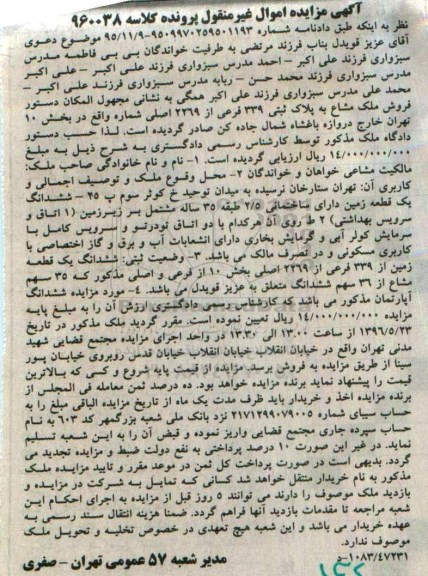 آگهی مزایده اموال غیرمنقول پرونده کلاسه ۹۶۰۰۳۸
نظر به اینکه طبق دادنامه شماره ۹۵۰۹۹۷۰۲۵۹۵۰۱۱۹۳-۹۵/۱۱/۹ موضوع دعوی
آقای عزیز قویدل بناب فرزند مرتضی به طرفیت خواندگان بی بی فاطمه مدرس
سبزواری فرزند علی اکبر - احمد مدرس سبزواری فرزند علی اکبر - علی اکبر
مدرس سبزواری فرزند محمد حسن - ربابه مدرس سبزواری فرزند علی اکبر -
محمد علی مدرس سبزواری فرزند علی اکبر همگی به نشانی مجهول المکان دستور
فروش ملک مشاع به پلاک ثبتی ۳۳۹ فرعی از ۲۲۶۹ اصلی شماره واقع در بخش ۱۰
تهران خارج دروازه باغشاه شمال جاده کن صادر گردیده است. لذا حسب دستور
دادگاه ملک مذکور توسط کارشناس رسمی دادگستری به شرح ذیل به مبلغ
۱۴/۰۰۰/۰۰۰/۰۰۰ ریال ارزیابی گردیده است. ۱- نام و نام خانوادگی صاحب ملک:
مالکیت مشاعی خواهان و خواندگان ۲- محل وقوع ملک و توصیف اجمالی و
کاربری آن: تهران ستارخان نرسیده به میدان توحید خ کوثر سوم پ ۲۵ - ششدانگ
یک قطعه زمین دارای ساختمانی ۲/۵ طبقه ۳۵ ساله مشتمل بر زیرزمین (۱ اتاق و
سرویس بهداشتی) ۲ ط روی آن هرکدام با دو اتاق تودرتو و سرویس کامل با
سرمایش کولر آبی و گرمایش بخاری دارای انشعابات آب و برق و گاز اختصاصی با
کاربری مسکونی و در تصرف مالک می باشد. ۳- وضعیت ثبتی: ششدانگ یک قطعه
زمین از ۳۳۹ فرعی از ۲۲۶۹ اصلی بخش ۱۰ از فرعی و اصلی مذکور که ۳۵ سهم
مشاع از ۳۶ سهم ششدانگ متعلق به عزیز قویدل می باشد. ۴- مورد مزایده ششدانگ
آپارتمان مذکور می باشد که کارشناس رسمی دادگستری ارزش آن را به مبلغ پایه
مزایده ۱۴/۰۰۰/۰۰۰/۰۰۰ ریال تعیین نموده است. مقرر گردید ملک مذکور در تاریخ
۱۳۹۶/۵/۲۳ از ساعت ۱۳:۰۰ الی ۱۳:۳۰ در واحد اجرای مزایده مجتمع قضایی شهید
مدنی تهران واقع در خیابان انقلاب خیابان انقلاب خیابان قدس روبروی خیابان پور
سینا از طریق مزایده به فروش برسد. مزایده از قیمت پایه شروع و کسی که بالاترین
قیمت را پیشنهاد نماید برنده مزایده خواهد بود. ده درصد ثمن معامله فی المجلس از
برنده مزایده اخذ و خریدار باید ظرف مدت یک ماه از تاریخ مزایده الباقی مبلغ را به
حساب سیبای شماره ۲۱۷۱۲۹۹۰۷۹۰۰۵ نزد بانک ملی شعبه بزرگمهر کد ۶۰۳ به نام
حساب سپرده جاری مجتمع قضایی واریز نموده و قبض آن را به این شعبه تسلیم
نماید. در غیر این صورت ۱۰ درصد پرداختی به نفع دولت ضبط و مزایده تجدید می
گردد. بدیهی است در صورت پرداخت کل ثمن در موعد مقرر و تایید مزایده ملک
مذکور به نام خریدار منتقل خواهد شد کسانی که تمایل به شرکت در مزایده و
بازدید ملک موصوف را دارند می توانند ۵ روز قبل از مزایده به اجرای احکام این
شعبه مراجعه تا مقدمات بازدید آنها فراهم گردد. ضمنا هزینه انتقال سند رسمی به
عهده خریدار می باشد و این شعبه هیچ تعهدی در خصوص تخلیه و تحویل ملک
موصوف ندارد.
۱۰۸۳/۴۷۲۳۱-د
مدیر شعبه ۵۷ عمومی تهران - صفری